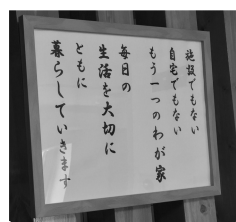 施設でもない
自宅でもない
もう一つのわが家
毎日の
生活を大切に
ともに
暮らしていきます